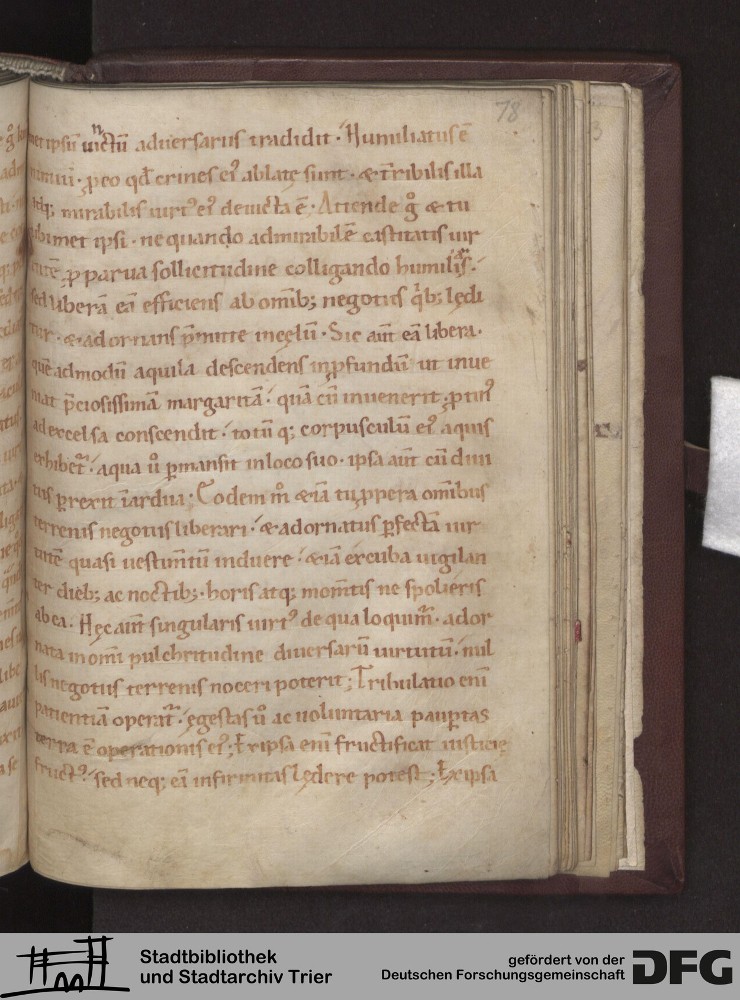 78
met ipsū uictū aduersarus tradidit · Humiliatus ē
nimiū · ꝓ eo qđ crines ei᷒ ablatę sunt · & t̄ribilis illa
atq; mirabilis uirt᷒ ei᷒ deuicta ē · Attende g̊ & tu
tibimet ipsi · ne quando admirabilē castitatis uir
tutē ꝓ parua sollicitudine colligando humilis ·
sed liberā eā efficiens ab omīb; negotiis q̊b; lędi
tur · & adornans p̄mitte in cęlū · Sic aut̄ eā libera ·
quē admodū aquila descendens in ꝓfundū ut inue
niat p̄ciosissimā margaritā · quā cū inuenerit · ꝓtin᷒
ad excelsa conscendit · totū q; corpusculū ei᷒ aquis
exhibet᷑ · aqua ů p̄mansit in loco suo · ipsa aut̄ cū diui
tiis ꝑrexit ī ardua ; Eodem m̊ & iā tu ꝓpera omībus
terrenis negotiis liberari · & adornatus ꝑfectā uir
tutē quasi uestim̄tū induere · & iā excuba uigilan
ter dieb; ac noctib; · horis atq; mom̄tis ne spolieris
ab ea · Hęc aut̄ singularis uirt᷒ de qua loquim᷑ · ador
nata in omī pulchritudine diuersarū uirtutū · nul
lis negotiis terrenis noceri poterit ; Tribulatio enī
patientiā operat᷑ · egestas ů ac uoluntaria pauꝑtas
terra ē operationis ei᷒ ; Ex ipsa enī fructificat iusticię
fruct᷒ · sed neq; eā infirmitas lędere potest ; Ex ipsa
3
Stadtbibliothek
und Stadtarchiv Trier
gefördert von der
Deutschen Forschungsgemeinschaft
DFG